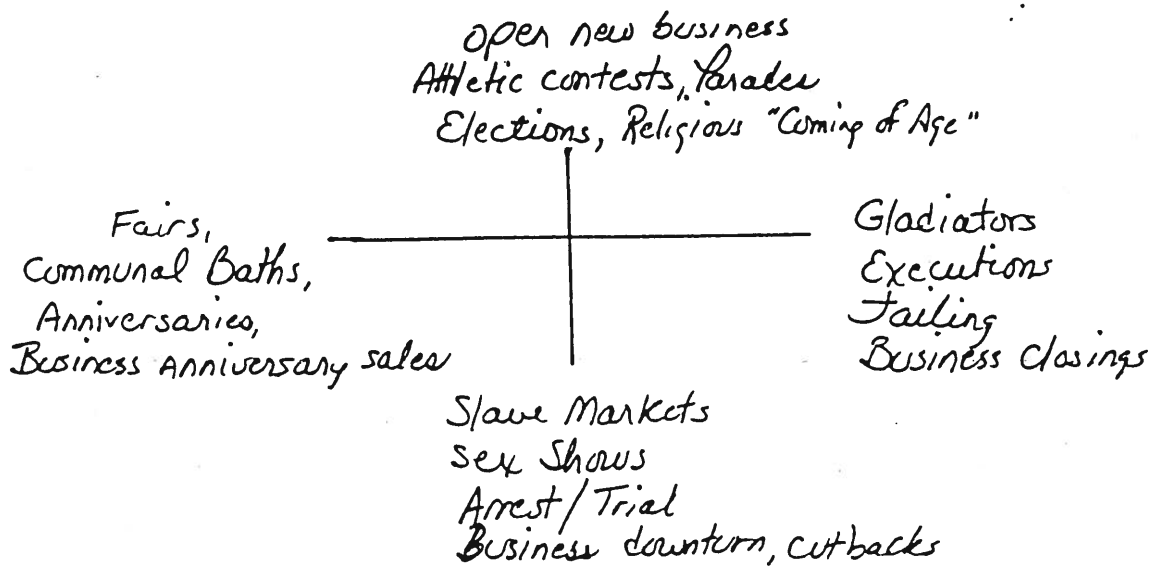 open new business
Athletic contests, Parades
Elections, Religious "Coming of Age"
Fairs,
Communal Baths,
Anniversaries,
Business Anniversary sales
Gladiators
Executions
Jailing
Business Closings
Slave Markets
Sex Shows
Arrest/Trial
Business downturn, cutbacks